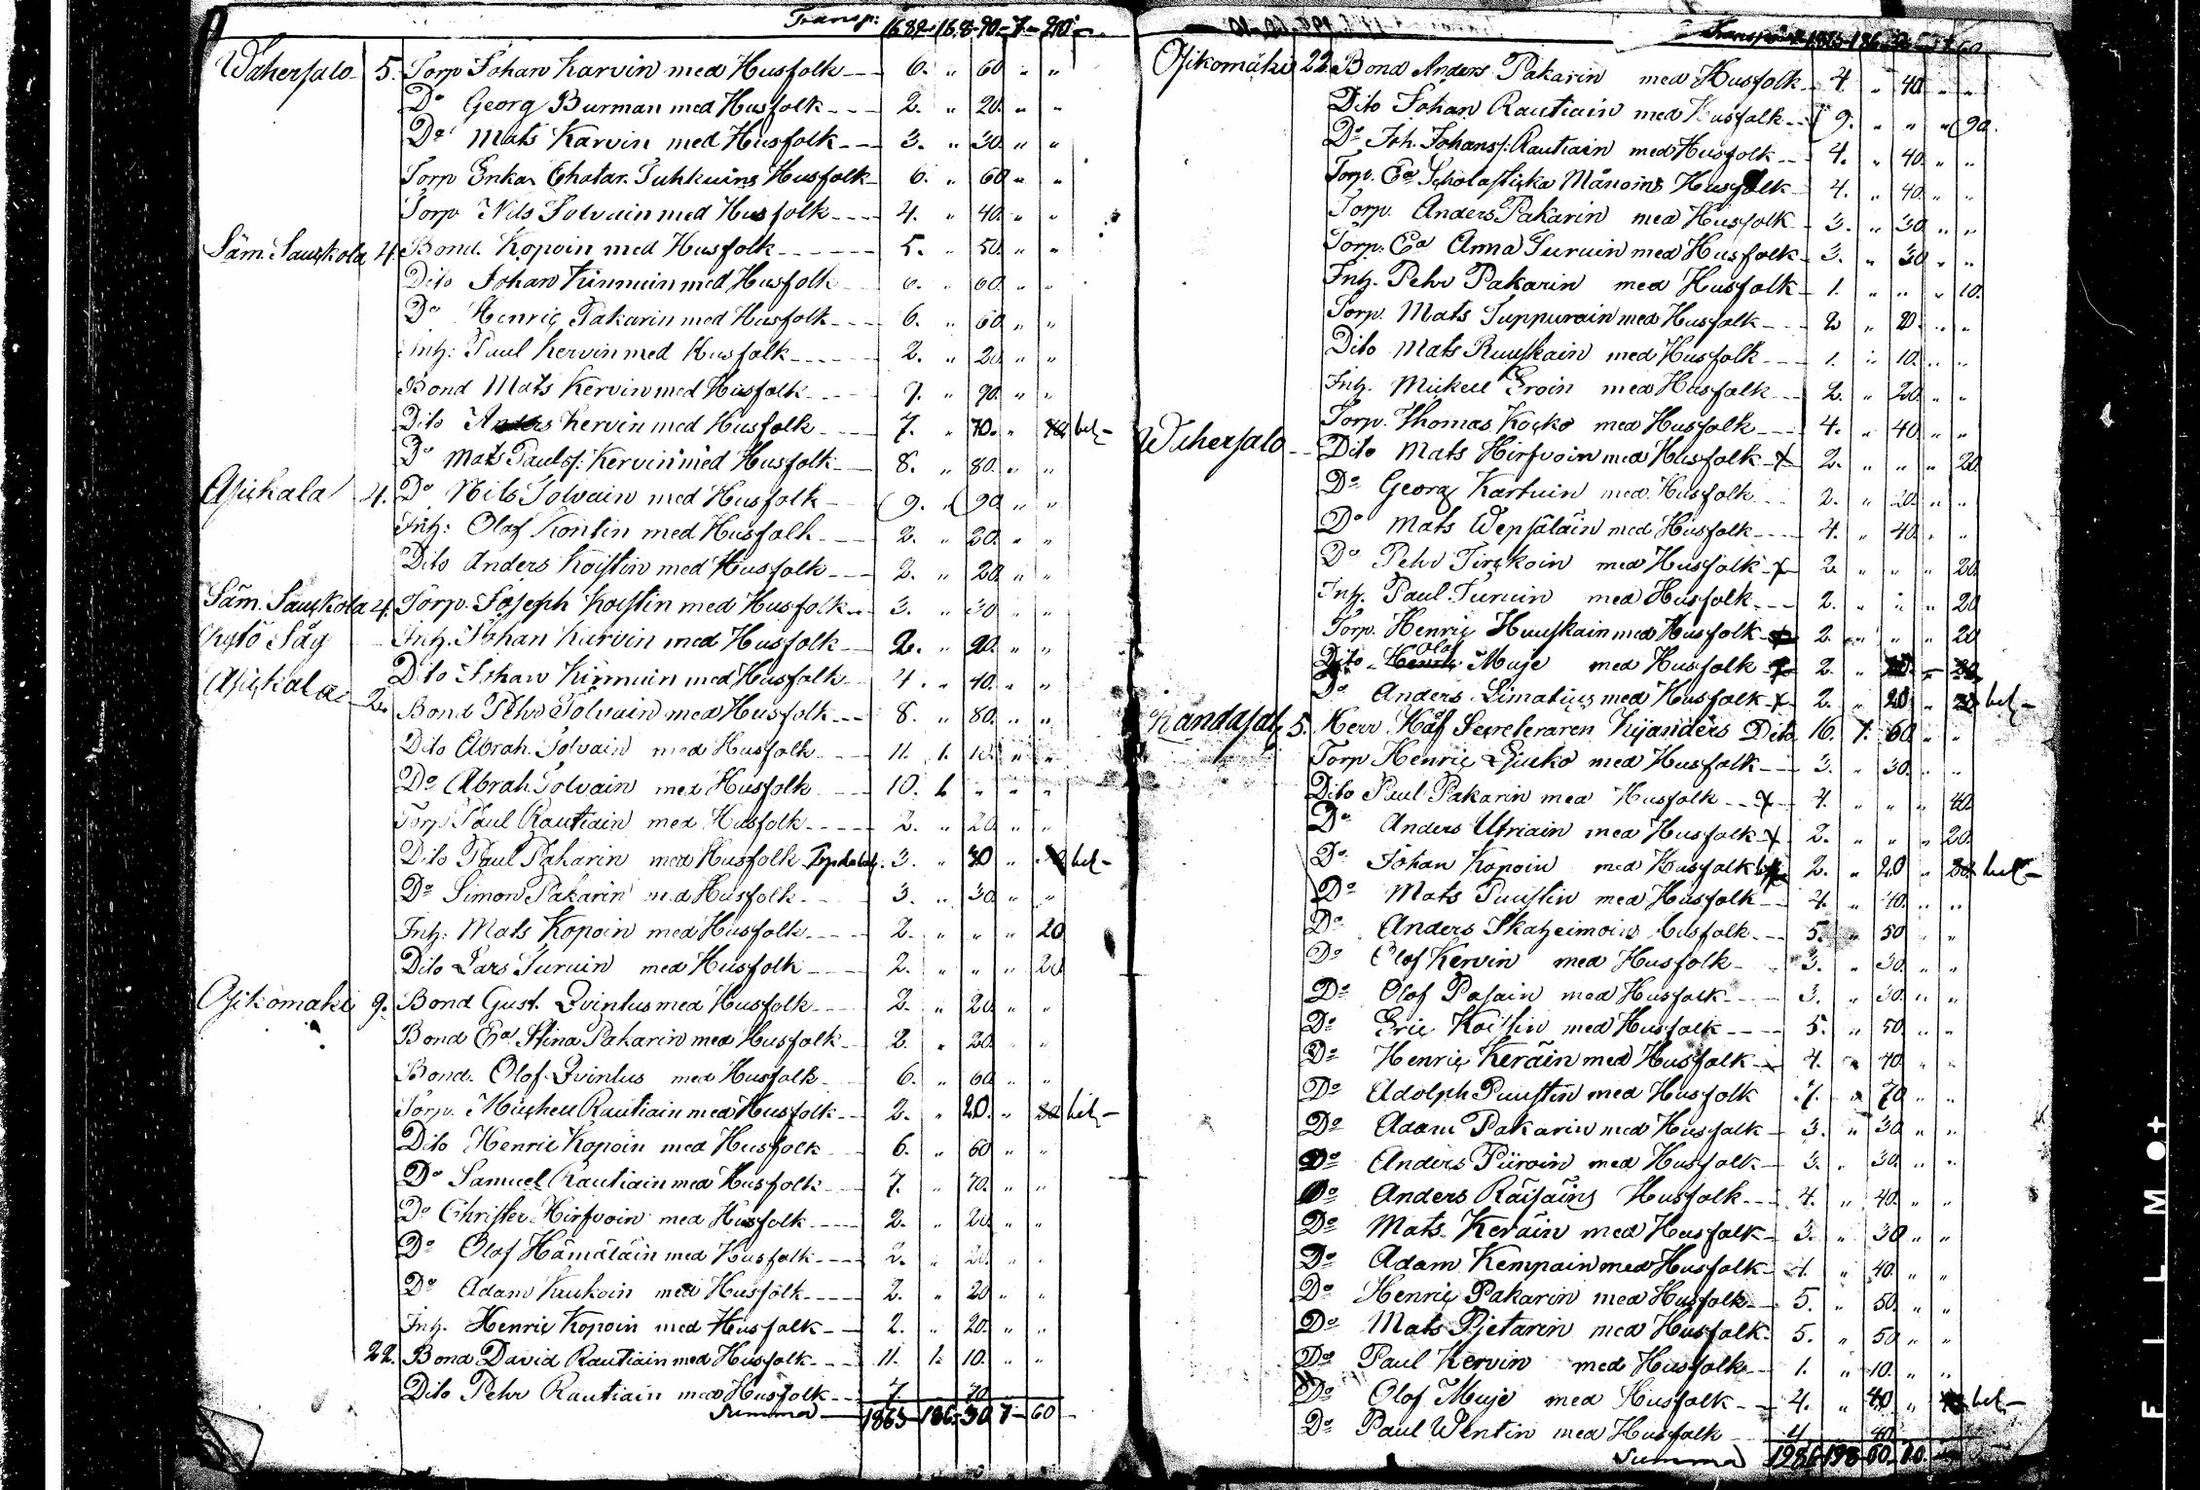 Transp: 1682 168 90 7 20
Wahersalo 5. Torp Johan Karvin med Husfolk 6. " 60 " "
Do Georg Burman med Husfolk 2. " 20. " "
Do Mats Karvin med Husfolk 3. " 30. " "
Torp Enkan Chatar. Suhkuins Husfolk 6. " 60 " "
Torp Nils Tolvain med Husfolk 4. " 40. " "
Säm. Sauskola 4. Bond. Kopoin med Husfolk 5. " 50. " "
Dito Johan Kinnuin med Husfolk 6. " 60 " "
Do Henric Pakarin med Husfolk 6. " 60 " "
Inh: Paul Kervin med Husfolk 2. " 20 " "
Bond Mats Kervin med Husfolk " " "
Dito Anders Kervin med Husfolk 7. " 70. " bet
Do Mats Paulss: Kervin med Husfolk 8. " 80. " "
Asikala 4. Do Nils Tolvain med Husfolk (9. " (90. " "
Inh: Olof Kontin med Husfolk 2. " 20. " "
Dito Anders Koistin med Husfolk 2. " 20. " "
Säm. Sauskola 4. Torp. Joseph Koistin med Husfolk 3. " 30 " "
Inh. Johan Karvin med Husfolk 2. " 20. " "
Dito Johan Kinnuin med Husfolk 4. " 40. " "
Asikala 2. Bond Pehr Tolvain med Husfolk 8. " 80. " "
Dito Abrah. Tolvain med Husfolk 11. 1. 10. " "
Do Abrah Tolvain med Husfolk 10. 1 " " "
Torp Paul Rautiain med Husfolk 2. " 20. " "
Dito Paul Pakarin med Husfolk 3. " 30 " bet
Do Simon Pakarin med Husfolk 3. " 30. " "
Inh: Mats Kopoin med Husfolk 2. " " " 20
Dito Lars Turuin med Husfolk 2. " " " 20
Ojikomäki 9. Bond Gust. Qvintus med Husfolk 2. " 20. " "
Bond Ea Stina Pakarin med Husfolk 2. " 20. " "
Bond. Olof Qvintus med Husfolk 6. " 60. " "
Torp. Michell Rautiain med Husfolk 2. " 20. " 20 bet
Dito Henric Kopoin med Husfolk 6. " 60 " "
Do Samuel Rautiain med Husfolk 7. " 70. " "
Do Christer Hirfvoin med Husfolk 2. " 20. " "
Do Olof Hämäläin med Husfolk 2. " 20. " "
Do Adam Kaukoin med Husfolk 2. " 20 " "
Inh. Henric Kopoin med Husfolk 2. " 20. " "
22. Bond David Rautiain med Husfolk 11. 1. 10. " "
Dito Pehr Rautiain med Husfolk 7. 70
Summa 1865 186 30 7 60
Ojikomäki 22. Bond Anders Pakarin med Husfolk 4. " 40. " "
Dito Johan Rautiain med Husfolk (9. " " " (90.
Do Joh. Johanss: Rautiain med Husfolk 4. " 40. " "
Torp. Ea Scholastica Månoins Husfolk 4. " 40. " "
Torp. Anders Pakarin med Husfolk 3. " 30. " "
Torp. Ea Anna Turuin med Husfolk 3. " 30 " "
Inh. Pehr Pakarin med Husfolk 1. " " " 10.
Torp. Mats Suppurain med Husfolk 2 " 20. " "
Dito Mats Ruuskain med Husfolk 1. " 10. " "
Inh. Mickell Eroin med Husfolk 2. " 20 " "
Torp. Thomas Kocko med Husfolk 4. " 40. " "
Wahersalo Dito Mats Hirfvoin med Husfolk 2. " " " 20
Do Georg Kartuin med Husfolk 2. " 20. " "
Do Mats Wepsäläin med Husfolk 4. " 40. " "
Do Pehr Tirckoin med Husfolk 2. " " " 20.
Inh. Paul Turuin med Husfolk 2. " " " 20
Torp. Henric Huuskain med Husfolk 2. " " " 20
Dito Olof Muje med Husfolk 2.
Do Anders Limatius med Husfolk 2. " 20 " bet
Kandasal 5. Herr Hof Secreteraren Kyanders Dito 16. 1. 60. " "
Torp Henric Ljusko med Husfolk 3. " 30. " "
Dito Paul Pakarin med Husfolk 4. " " " 40.
Do Anders Utriain med Husfolk 2. " " " 20.
Do Johan Kopoin med Husfolk 2. " 20 " 20 bet
Do Mats Puustin med Husfolk 4. " 40. " "
Do Anders Husfolk 5. " 50 " "
Do Olof Kervin med Husfolk 3. " 30. " "
Do Olof Pasain med Husfolk 3. " 30. " "
Do Eric Koistin med Husfolk 5. " 50 " "
Do Henric Keräin med Husfolk 4. " 40. " "
Do Adolph Puustin med Husfolk 7. " 70 " "
Do Adam Pakarin med Husfolk 3. " 30 " "
Do Anders Piiroin med Husfolk 3. " 30. " "
Do Anders Räisäins Husfolk 4. " 40. " "
Do Mats Keräin med Husfolk 3. " 30 " "
Do Adam Kempain med Husfolk 4. " 40. " "
Do Henric Pakarin med Husfolk 5. " 50. " "
Do Mats Pjetarin med Husfolk 5. " 50 " "
Do Paul Kervin med Husfolk 1. " 10. " "
Do Olof Muje med Husfolk 4. " 40 " bet
Do Paul Wentin med Husfolk 4 40
Summa 198 60 10
F I L M